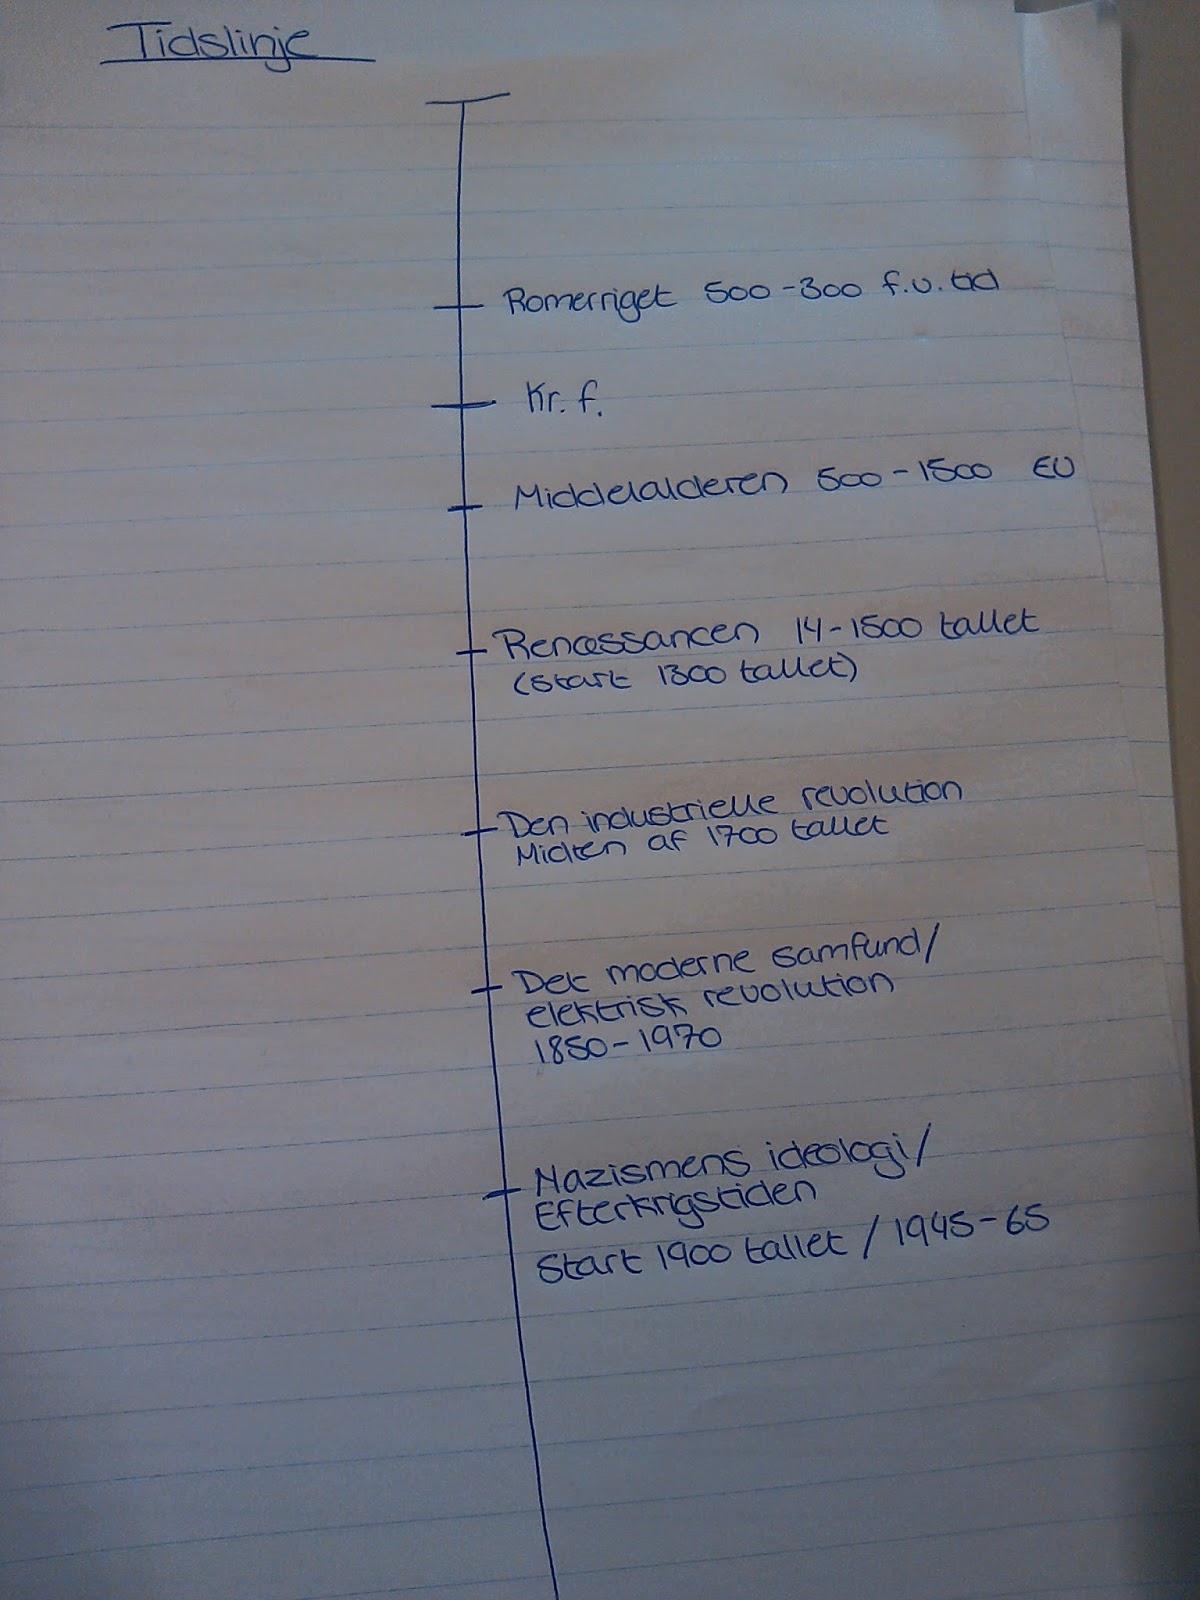 Tidslinje
Romerriget 500-300 f.v.tid
Kr. f.
Middelalderen 500-1500 EU
Renæssancen 14-1500 tallet
(start 1300 tallet)
Den industrielle revolution
Midten af 1700 tallet
Det moderne samfund/
elektrisk revolution
1850-1970
Nazismens ideologi/
Efterkrigstiden
Start 1900 tallet / 1945-65